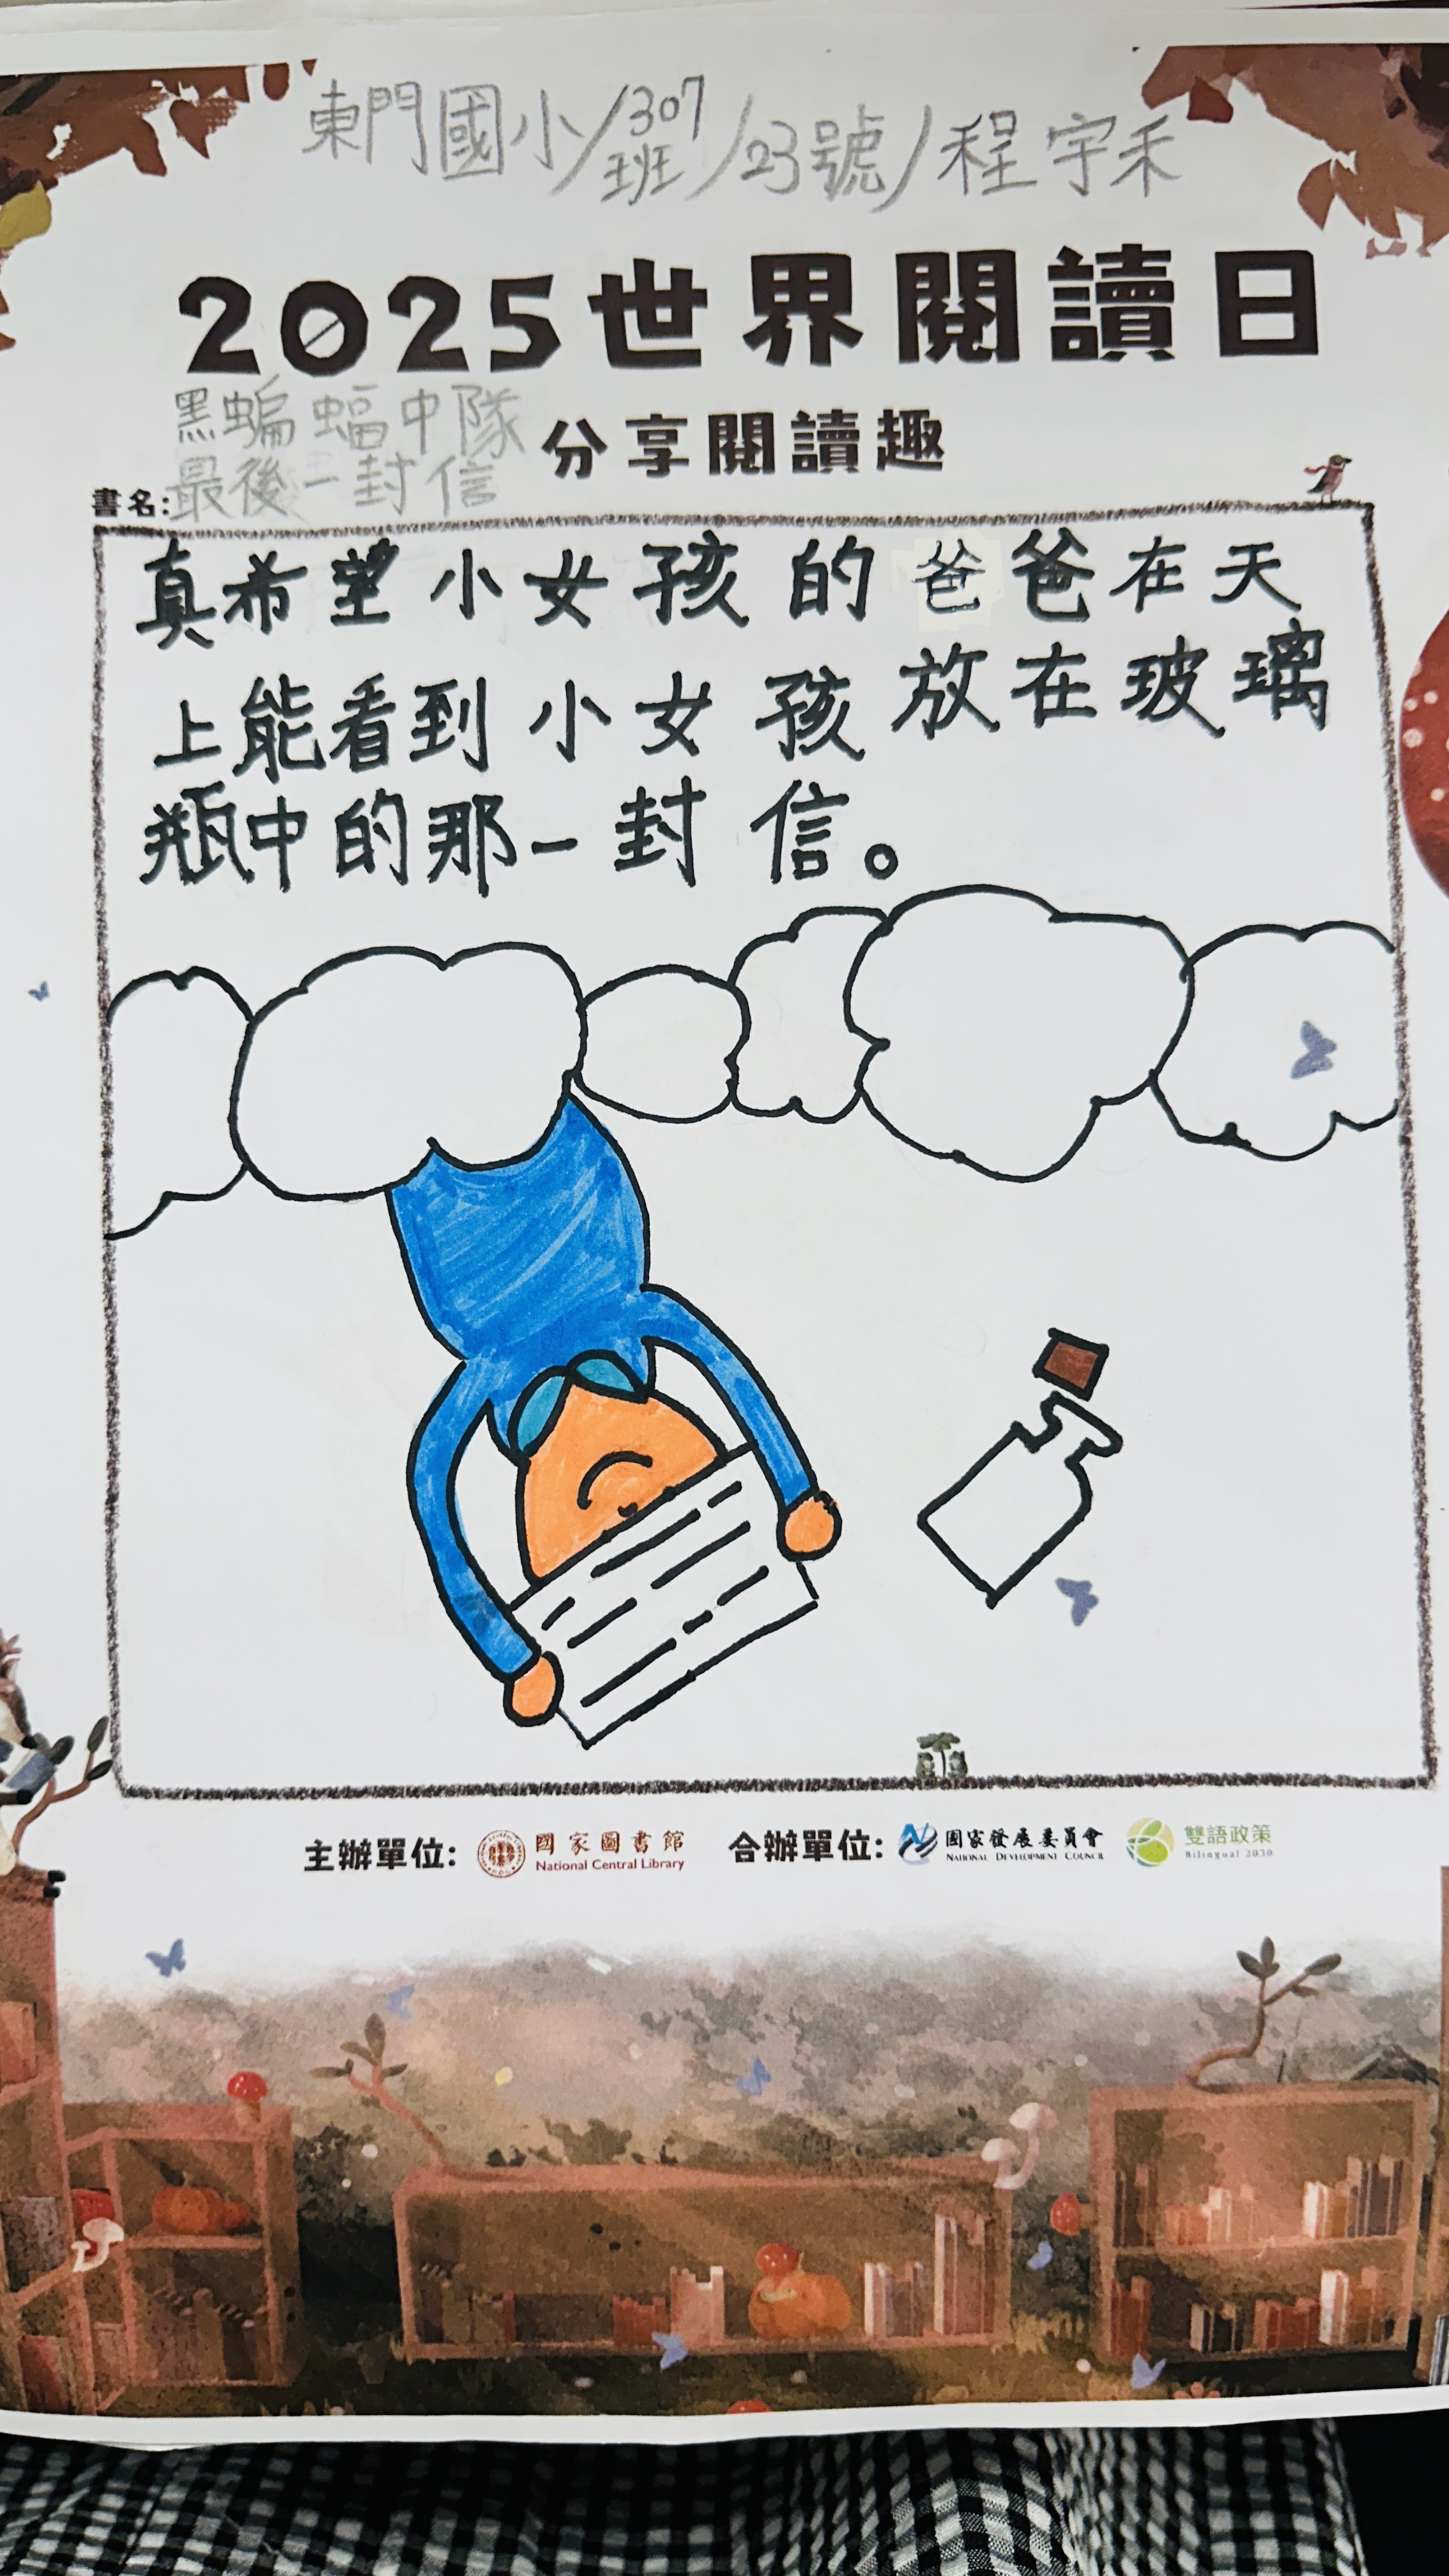 東門國小/307班/23號/程宇禾
2025世界閱讀日
分享閱讀趣
書名:黑蝙蝠中隊
最後一封信
真希望小女孩的爸爸在天
上能看到小女孩放在玻璃
瓶中的那一封信。
主辦單位: 國家圖書館 National Central Library 合辦單位: 國家發展委員會 NATIONAL DEVELOPMENT COUNCIL 雙語政策 Bilingual 2030